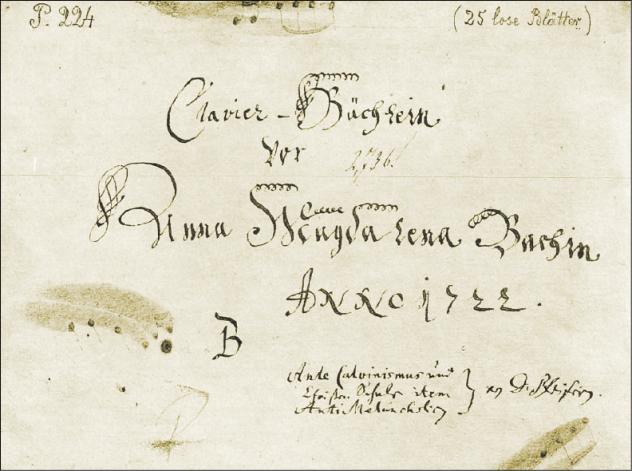 P. 224
(25 lose Blätter)
Clavier-Büchlein
vor
Anna Magdalena Bachin
ANNO 1722.
B
Ante Calvinismus und
Christen Schule item
Anti Melancholicus
D. Pfeifern.